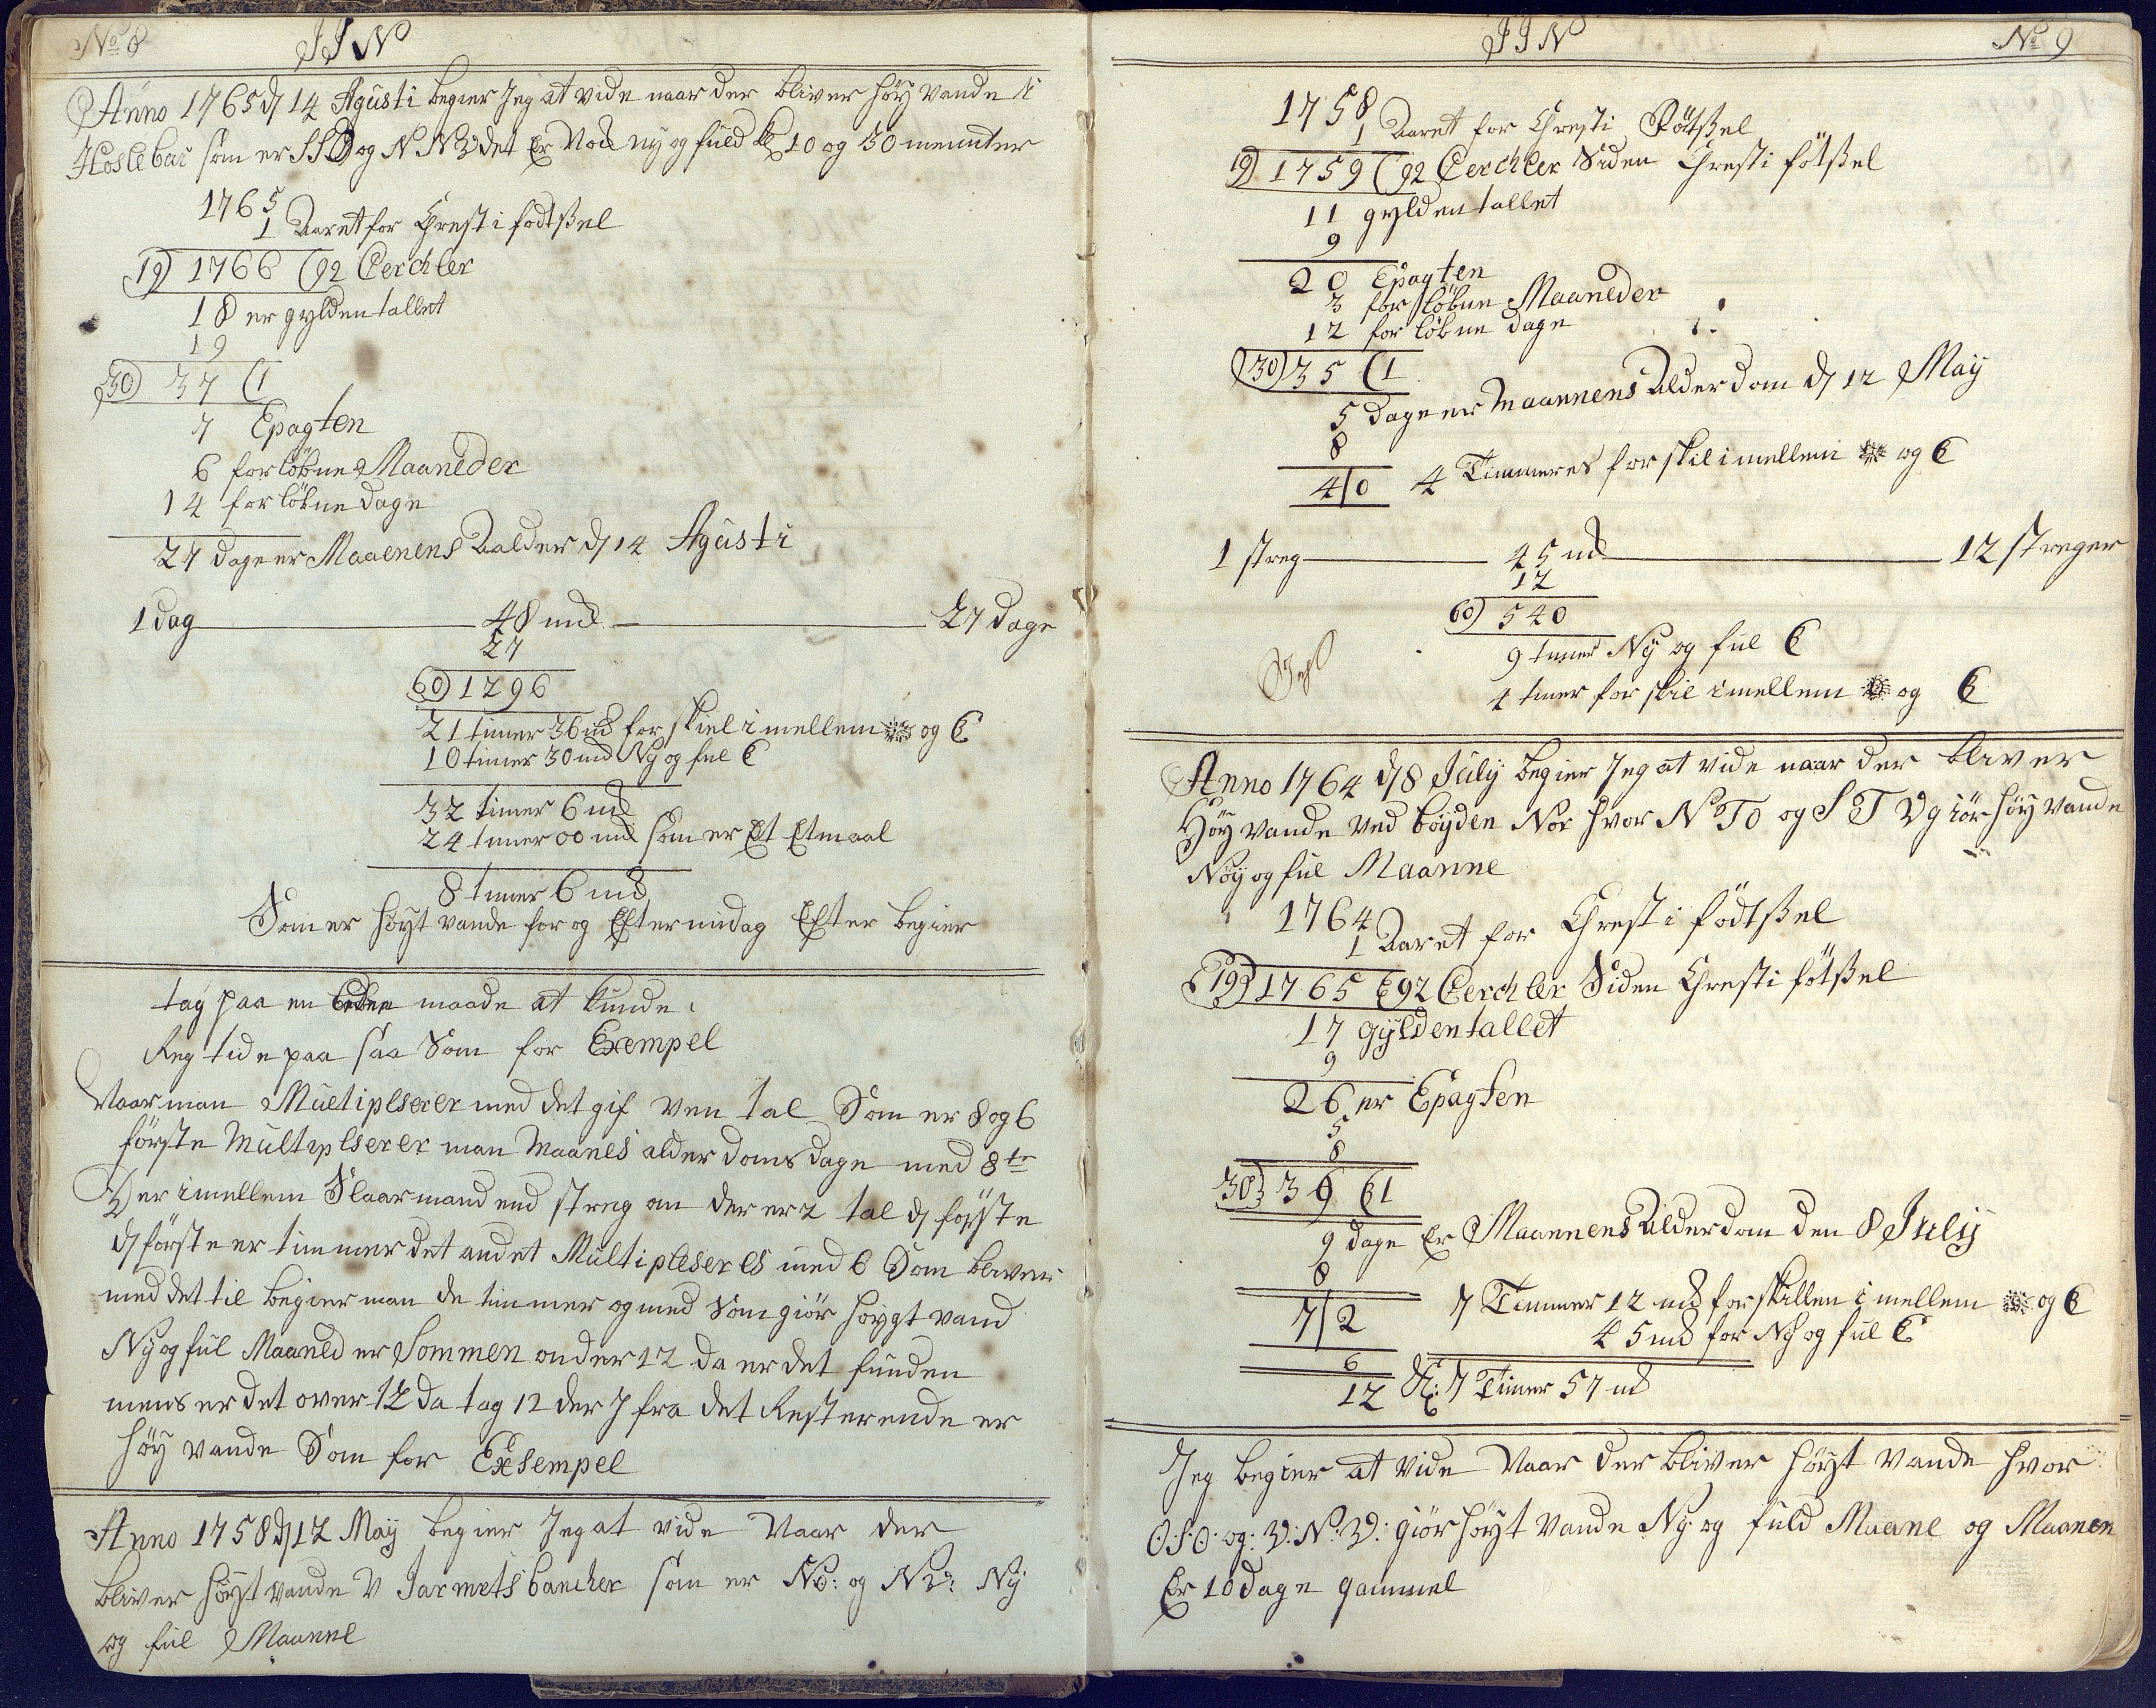 No 8 JJN
Anno 1765 d 14 Agusti begier Jeg at vide naar der bliver höÿ vande i
Hoslebar som er SSO og NNV det Er Ved nÿ og fuld kl 10 og 30 menuter
1765
1 Aaret for Chresti fodtsßel
19) 1766 (92 Cerchler
18 er gylden tallet
19
30) 37 (1
7 Epagten
6 forløbne Maaneder
14 forløbne dage
27 dage er Maaenens Aalder d 14 Agusti
1 Dag 48 md 27 Dage
27
60) 1296
21 timer 36 md forskiel imellem ☼ og ☾
10 timer 30 md Nÿ og ful ☾
32 timer 6 md
24 timer 00 md som er Et Etmaal
8 timer 6 md
Som er höÿt vande for og Efter midag Efter begier
tag paa en maade at kunde
Reg tide paa saa Som for Exempel
Naar man Multiplserer med det gif ven tal Som er 8 og 6
förste Multiplserer man Maanes alderdoms dage med 8te
Der imellem Slaar mand end streg om der er 2 tal d förste
d förste er timmer det andet Multipleseres med 6 Som bliver
med det til begier man de timmer og med Som giör höÿgt vand
Nÿ og ful Maaned er Sommen onder 12 da er det funden
mens er det over 12 da tag 12 der J fra det Resterende er
höÿ vande Som for Exsempel
Anno 1758 d 12 Maÿ begier Jeg at vide Naar der
bliver höÿt vande V Jarmets bancker som er NO: og NV: Nÿ
og ful Maanne
JJN No 9
1758
1 Aaret for Chresti Fötsßel
19) 1759 (92 Cerchler Siden Chresti fötsßel
11 gylden tallet
9
20 Epagten
3 forløbne Maaneder
12 forløbne dage
30) 35 (1
5 dage er Maannens Alderdom d 12 Maÿ
8
4/0 4 Timmeres forskil imellem ☼ og ☾
1 streg 45 md 12 streger
12
60) 540
9 timer Nÿ og ful ☾
4 timer forskil imellem ☼ og ☾
Anno 1764 d 8 Julÿ begier Jeg at vide naar der bliver
Höÿ vande ved böyden Nor hvor N T O og S T V giör höÿ vande
Nöÿ og ful Maanne
1764
1 Aaret for Chresti födtsßel
19) 1765 (92 Cerchler Siden Chresti fötsßel
17 gÿlden tallet
9
26 er Epagten
5
8
30) 39 (1
9 dage Er Maannens Alderdom den 8 Julÿ
8
7/2 7 Timmer 12 md forskillen imellem ☼ og ☾
45 md for Nÿ og ful ☾
6
12 Kl: 7 Timer 57 md
Jeg begier at vide Naar der bliver höÿt vande hvor
O.S.O. og: V:N:V: giör höÿt vande Nÿ og fuld Maane og Maanen
Er 10 dage gammel